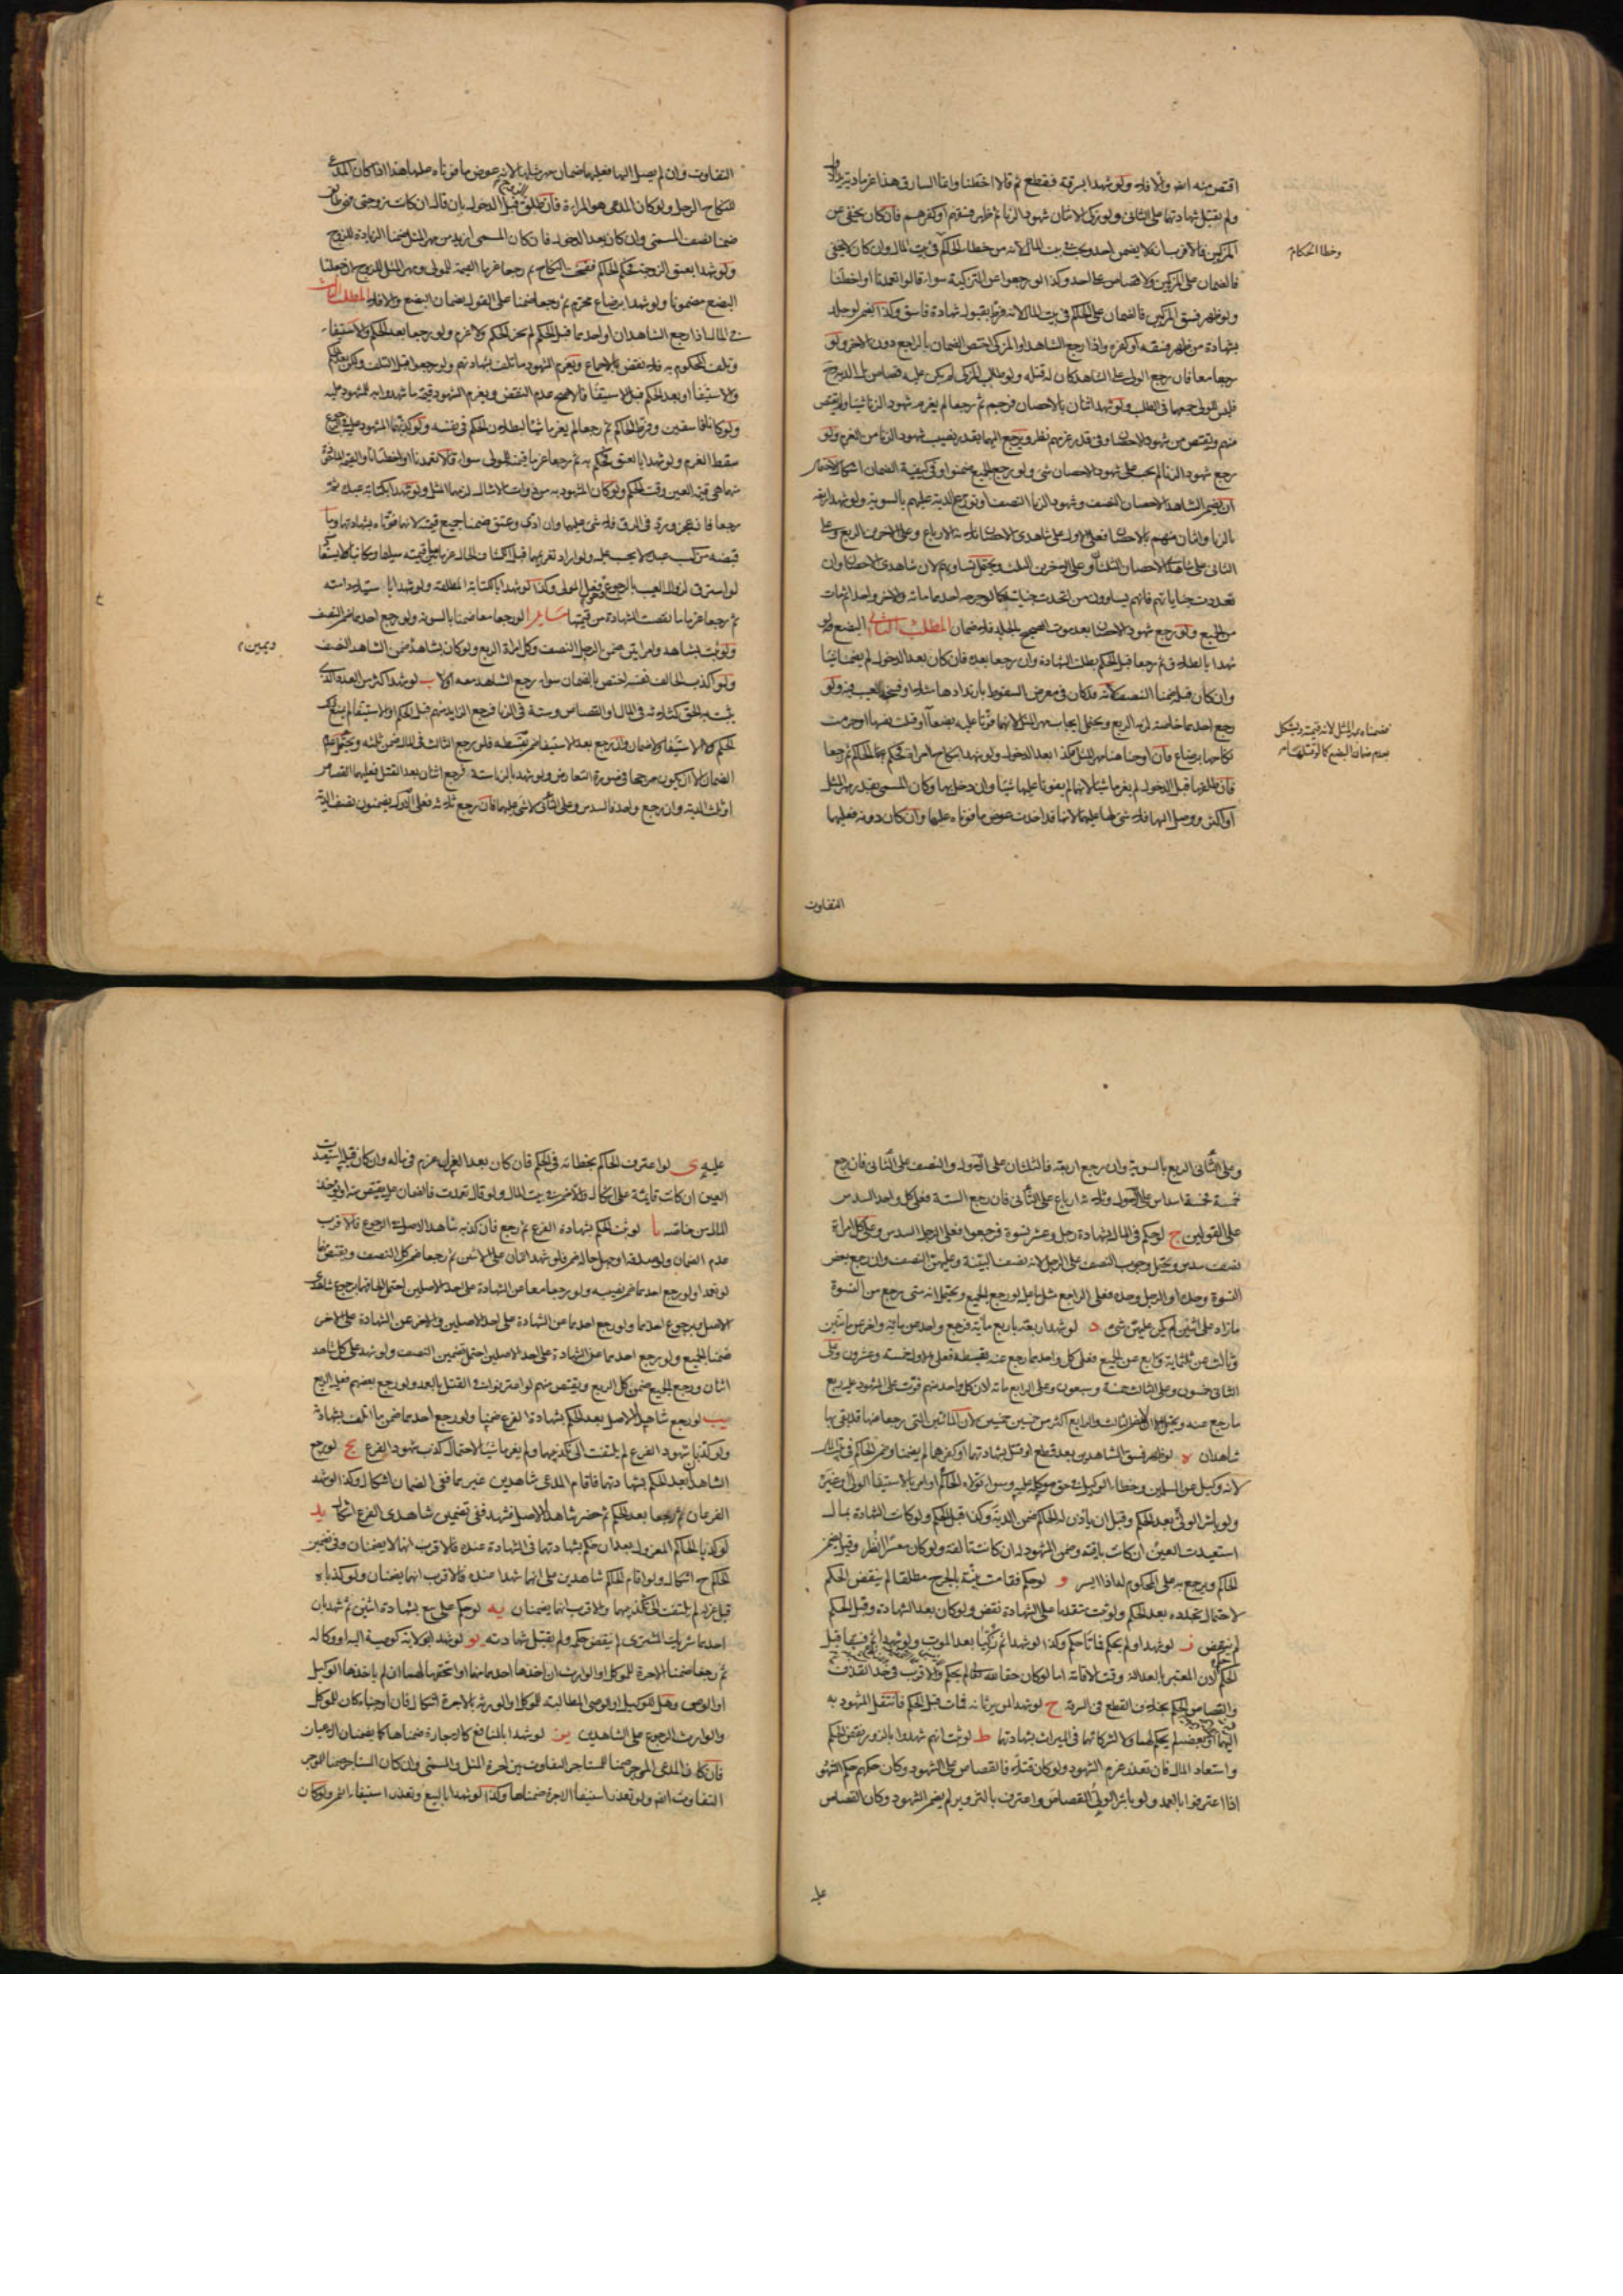 اقتص منه اخر والا فلا ولو شهدا بسرقة فقطع ثم قالا اخطئنا وانما السارق هذا غرما دية يد الاول
ولم يقبل شهادتهما على الثانى ولو زكى الاثنان شهود الزنا ثم ظهر فسقهم او كفرهم فان كان يخفى عن
المزكين فالاقرب انه لا يضمن احد ويجب فى بيت المال لانه من خطاء الحاكم فى بيت المال وان كان لا يخفى
وخطا الحكام
فالضمان على المزكين ولا قصاص على احد وكذا لو رجعوا عن التزكية سواء قالوا تعمدنا او اخطئنا
ولو ظهر فسق المزكين فالضمان على الحاكم فى بيت المال لانه فرط بقبول شهادة فاسق وكذا
بشهادة من ظهر فسقه او كفره واذا رجع الشاهد او المزكى اختص الضمان بالراجع دون الاخر ولو
رجعا معا فان رجع الولى على الشاهد كان له قتله ولو طلب المزكى لم يكن عليه قصاص بل الدية
فليس للولى جمعهما فى الطلب ولو شهد اثنان بالاحصان فرجم ثم رجعا لم يغرم شهود الزنا شيئا ولم يقتص
منهم ويقتص من شهود الاحصان وفى قدر غرمهم نظر ويرجع اليهما بقدر نصيب شهود الزنا من الغرم ولو
رجع شهود الزنا لم يجب على شهود الاحصان شئ ولو رجع الجميع ضمنوا وفى كيفية الضمان اشكال
ان يضمن شاهدا الاحصان النصف وشهود الزنا النصف او توزع الدية عليهم بالسوية ولو شهد اربعة
بالزنا واثنان منهم بالاحصان فعلى الاول على شاهدى الاحصان ثلاثة الارباع وعلى الاخرين الربع وعلى
الثانى على شاهدى الاحصان الثلثان وعلى الاخرين الثلث ويحتمل تساويهم لان شاهدى الاحصان وان
تعددت جناياتهم فانهم يساوون من اتحدت جنايته كما لو جرحه احدهما مائة والاخر واحدا ثم مات
من الجميع ولو رجع شهود الاحصان بعد موت الصحيح بالجلد فلا ضمان المطلب الثانى البضع فلو
شهدا بالطلاق ثم رجعا قبل الحكم بطلت الشهادة وان رجعا بعده فان كان بعد الدخول لم يضمنا شيئا
وان كان قبله ضمنا النصف لانه كان فى معرض السقوط بارتدادها مثلا او فسخه لعيب فيه ولو
رجع احدهما خاصة لزمه الربع ويحتمل ايجاب مهر المثل لانهما فوتا عليه بضعا او قلت نصفها او حرمت
ضمناه مهر المثل لانه قيمته ويشكل
بعدم ضمان البضع كما لو قتلها م
نكاحها برضاع فان اوجبنا هنا مهر المثل فكذا بعد الدخول ولو شهدا بنكاح امراة فحكم به الحاكم ثم رجعا
فان طلقها قبل الدخول لم يغرما شيئا لانهما لم يفوتا عليها شيئا وان دخل بها وكان المسمى بقدر مهر المثل
او اكثر ووصل اليها فلا شئ لها عليهما لانها قد اخذت عوض ما فوتاه عليها وان كان دونه فعليهما
التفاوت
التفاوت وان لم يصل اليها فعليهما ضمان مهر مثلها لانه عوض ما فوتاه عليها هذا اذا كان المدعى
للنكاح الرجل ولو كان المدعى هو المراة فان طلق الزوج قبل الدخول بان قال ان كانت زوجتى فهى طالق
ضمنا نصف المسمى وان كان بعد الدخول فان كان المسمى ازيد من مهر المثل ضمنا الزيادة للزوج
ولو شهدا بعتق الزوجة فحكم الحاكم ففسخت النكاح ثم رجعا غرما القيمة للمولى ومهر المثل للزوج ان جعلنا
البضع مضمونا ولو شهدا برضاع محرم ثم رجعا ضمنا على القول بضمان البضع والا فلا المطلب الثالث
فى المال اذا رجع الشاهدان او احدهما قبل الحكم لم يجز الحكم ولا غرم ولو رجعا بعد الحكم والاستيفاء
وتلف المحكوم به فلا نقض بالاجماع ويغرم الشهود ما تلف بشهادتهم ولو رجعا قبل التلف ولكن بعد الحكم
والاستيفاء او بعد الحكم قبل الاستيفاء فالاصح عدم النقض ويغرم الشهود قيمة ما شهدوا به للمشهود عليه
ولو كانا فاسقين وفرط الحاكم ثم رجعا لم يغرما شيئا لبطلان الحكم فى نفسه ولو كذبهما المشهود عليه
سقط الغرم ولو شهدا بالعتق فحكم به ثم رجعا غرما قيمته للمولى سواء قالا تعمدنا او اخطئنا
قيمة العين وقت الحكم ولو كان المشهود به من ذوات الامثال لزمهما المثل ولو شهدا بكتابة عبده ثم
رجعا فان عجز ورد فى الرق فلا شئ عليهما وان ادى وعتق ضمنا جميع قيمته لانهما فوتاه بشهادتهما وما
قبضه من كسب عبده لا يحسب عليه ولو اراد تغريمهما قبل انكشاف الحال غرما ما بين قيمته سليما ومكاتبا
لو استرق لزوال العيب بالرجوع وكذا لو شهدا بالكتابة المطلقة ولو شهدا باستيلاد امته
ثم رجعا غرما ما نقصت الشهادة من قيمتها مسايل ا لو رجعا معا ضمنا بالسوية ولو رجع احدهما ضمن النصف
ولو ثبت بشاهد وامراتين ضمن الرجل النصف وكل امراة الربع ولو كان بشاهد ضمن الشاهد النصف
ويمين م
ولو اكذب الحالف نفسه اختص بالضمان سواء رجع الشاهد معه او لا ب لو شهد اكثر من العدد الذى
يثبت به الحق كثلاثة فى المال او القصاص وستة فى الزنا فرجع الزايد منهم قبل الحكم او الاستيفاء لم يمنع ذلك
الحكم ولا الاستيفاء ولا ضمان ولو رجع بعد الاستيفاء ضمن بقسطه فلو رجع الثالث فى المال ضمن ثلثه ويحتمل عدم
الضمان الا ان يكون مرجحا فى صورة التعارض ولو شهد بالزنا ستة فرجع اثنان بعد القتل فعليهما القصاص
او ثلث الدية وان رجع واحد فالسدس وعلى الثانى لا شئ عليهما فان رجع ثلاثة فعلى الاول يضمنون نصف الدية
وعلى الثانى الربع بالسوية وان رجع اربعة فالثلثان على الاول والنصف على الثانى فان رجع
خمسة فخمسة اسداس على الاول وثلاثة ارباع على الثانى فان رجع الستة فعلى كل واحد السدس
على القولين ج لو حكم فى المال بشهادة رجل وعشر نسوة فرجعوا فعلى الرجل السدس وعلى كل امراة
نصف سدس ويحتمل وجوب النصف على الرجل لانه نصف البينة وعليهن النصف وان رجع بعض
النسوة وحده او الرجل وحده فعلى الراجع مثل ما عليه لو رجع الجميع ويحتمل انه متى رجع من النسوة
ما زاد على اثنتين لم يكن عليهن شئ د لو شهد اربعة باربع مائة فرجع واحد عن مائة واخر عن مائتين
وثالث عن ثلثمائة ورابع عن الجميع فعلى كل واحد مما رجع عنه بقسطه فعلى الاول خمسة وعشرون وعلى
الثانى خمسون وعلى الثالث خمسة وسبعون وعلى الرابع مائة لان كل واحد منهم فوت على المشهود عليه ربع
ما رجع عنه ويحتمل ان لا يلزم الثالث والرابع اكثر من خمسين خمسين لان المائتين التى رجعا عنها قد بقى بها
شاهدان ه لو ظهر فسق الشاهدين بعد قطع او قتل بشهادتهما او كفرهما لم يضمنا وضمن الحاكم فى بيت المال
لانه وكيل عن المسلمين وخطاء الوكيل فى حق موكله عليه وسواء تولاه الحاكم او امر بالاستيفاء الولى او غيره
ولو باشر الولى بعد الحكم وقبل ان ياذن له الحاكم ضمن الدية وكذا قبل الحكم ولو كانت الشهادة بمال
استعيدت العين ان كانت باقية وضمن المشهود له ان كانت تالفة ولو كان معسرا انظر وقيل يضمن
الحاكم ويرجع به على المحكوم له اذا ايسر و لو حكم فقامت بينة بالجرح مطلقا لم ينقض الحكم
لاحتمال تجدده بعد الحكم ولو ثبت متقدما على الشهادة نقض ولو كان بعد الشهادة وقبل الحكم
لم ينقض ز لو شهدا ولم يحكم فماتا حكم وكذا لو شهدا ثم زكيا بعد الموت ولو شهدا ثم فسقا قبل
الحكم لان المعتبر بالعدالة وقت الاقامة اما لو كان حقا لله تعالى لم يحكم والاقرب فى حد القذف
والقصاص الحكم بخلاف القطع فى السرقة ح لو شهدا لمن يرثانه فمات قبل الحكم فانتقل المشهود به
اليهما او بعضه لم يحكم لهما ولا لشركائهما فى الميراث بشهادتهما ط لو ثبت انهم شهدوا بالزور نقض الحكم
واستعاد المال فان تعذر غرم الشهود ولو كان قتلا فالقصاص على الشهود وكان حكمهم حكم الشهود
اذا اعترفوا بالعمد ولو باشر الولى القصاص واعترف بالتزوير لم يضمن الشهود وكان القصاص
عليه
عليه ى لو اعترف الحاكم بخطائه فى الحكم فان كان بعد العزل غرم فى ماله وان كان قبله استعيدت
العين ان كانت قايمة على اشكال والا ضمن فى بيت المال ولو قال تعمدت فالضمان عليه يقتص منه او يؤخذ
المال من خاصته يا لو ثبت الحكم بشهادة الفرع ثم رجع فان كذبه شاهد الاصل فى الرجوع فالاقرب
عدم الضمان ولو صدقه او جهل حاله ضمن فلو شهد اثنان على الاثنين ثم رجعا ضمن كل النصف ويقتص منهما
لو تعمدا ولو رجع احدهما ضمن نصيبه ولو رجعا معا عن الشهادة على احد الاصلين احتمل الحاقهما برجوع شاهدى
الاصل وبرجوع احدهما ولو رجع احدهما عن الشهادة على احد الاصلين والاخر عن الشهادة على الاخر
ضمنا الجميع ولو رجع احدهما عن الشهادة على احد الاصلين احتمل تضمين النصف ولو شهد على كل شاهد
اثنان ورجع الجميع ضمن كل الربع ويقتص منهم لو اعترفوا فى القتل بالعمد ولو رجع بعضهم فعليه الربع
يب لو رجع شاهدا الاصل بعد الحكم بشهادة الفرع ضمنا ولو رجع احدهما ضمن ما اتلف بشهادته
ولو كذبا شهود الفرع لم يلتفت الى تكذيبهما ولم يغرما شيئا لاحتمال كذب شهود الفرع يج لو رجع
الشاهدان بعد الحكم بشهادتهما فاقام المدعى شاهدين غيرهما ففى الضمان اشكال وكذا لو شهد
الفرعان ثم رجعا بعد الحكم ثم حضر شاهدا الاصل فشهدا ففى تضمين شاهدى الفرع اشكال يد
لو كذبا الحاكم المعزول بعد ان حكم بشهادتهما فى الشهادة عنده فالاقرب انهما لا يضمنان وفى تضمين
الحاكم ح اشكال ولو اقام الحاكم شاهدين على انهما شهدا عنده فالاقرب انهما يضمنان ولو كذباه
قبل عزله لم يلتفت الى تكذيبهما والاقرب انهما يضمنان يه لو حكم على بيع بشهادة اثنين ثم شهد بان
احدهما شريك المشترى لم ينقض حكمه ولم يقبل شهادته يو لو شهدا بولاية كوصية اليه او وكالة
ثم رجعا ضمنا الاجرة للموكل او الوارث ان اخذها احدهما منهما او استحقها لهما ان لم ياخذها الوكيل
او الوصى وهل للوكيل او الوصى المطالبة للموكل او الورثة بالاجرة اشكال فان اوجبناه كان للموكل
والوارث الرجوع على الشاهدين يز لو شهدا بالمنافع كالاجارة ضمناها كما يضمنان الاعيان
فان كان المدعى الموجر ضمنا للمستاجر التفاوت بين اجرة المثل والمسمى وان كان المستاجر ضمنا للموجر
التفاوت اخر ولو تعذر استيفاء الاجرة ضمناها وكذا لو شهدا بالبيع وتعذر استيفاء الثمن ولو كان